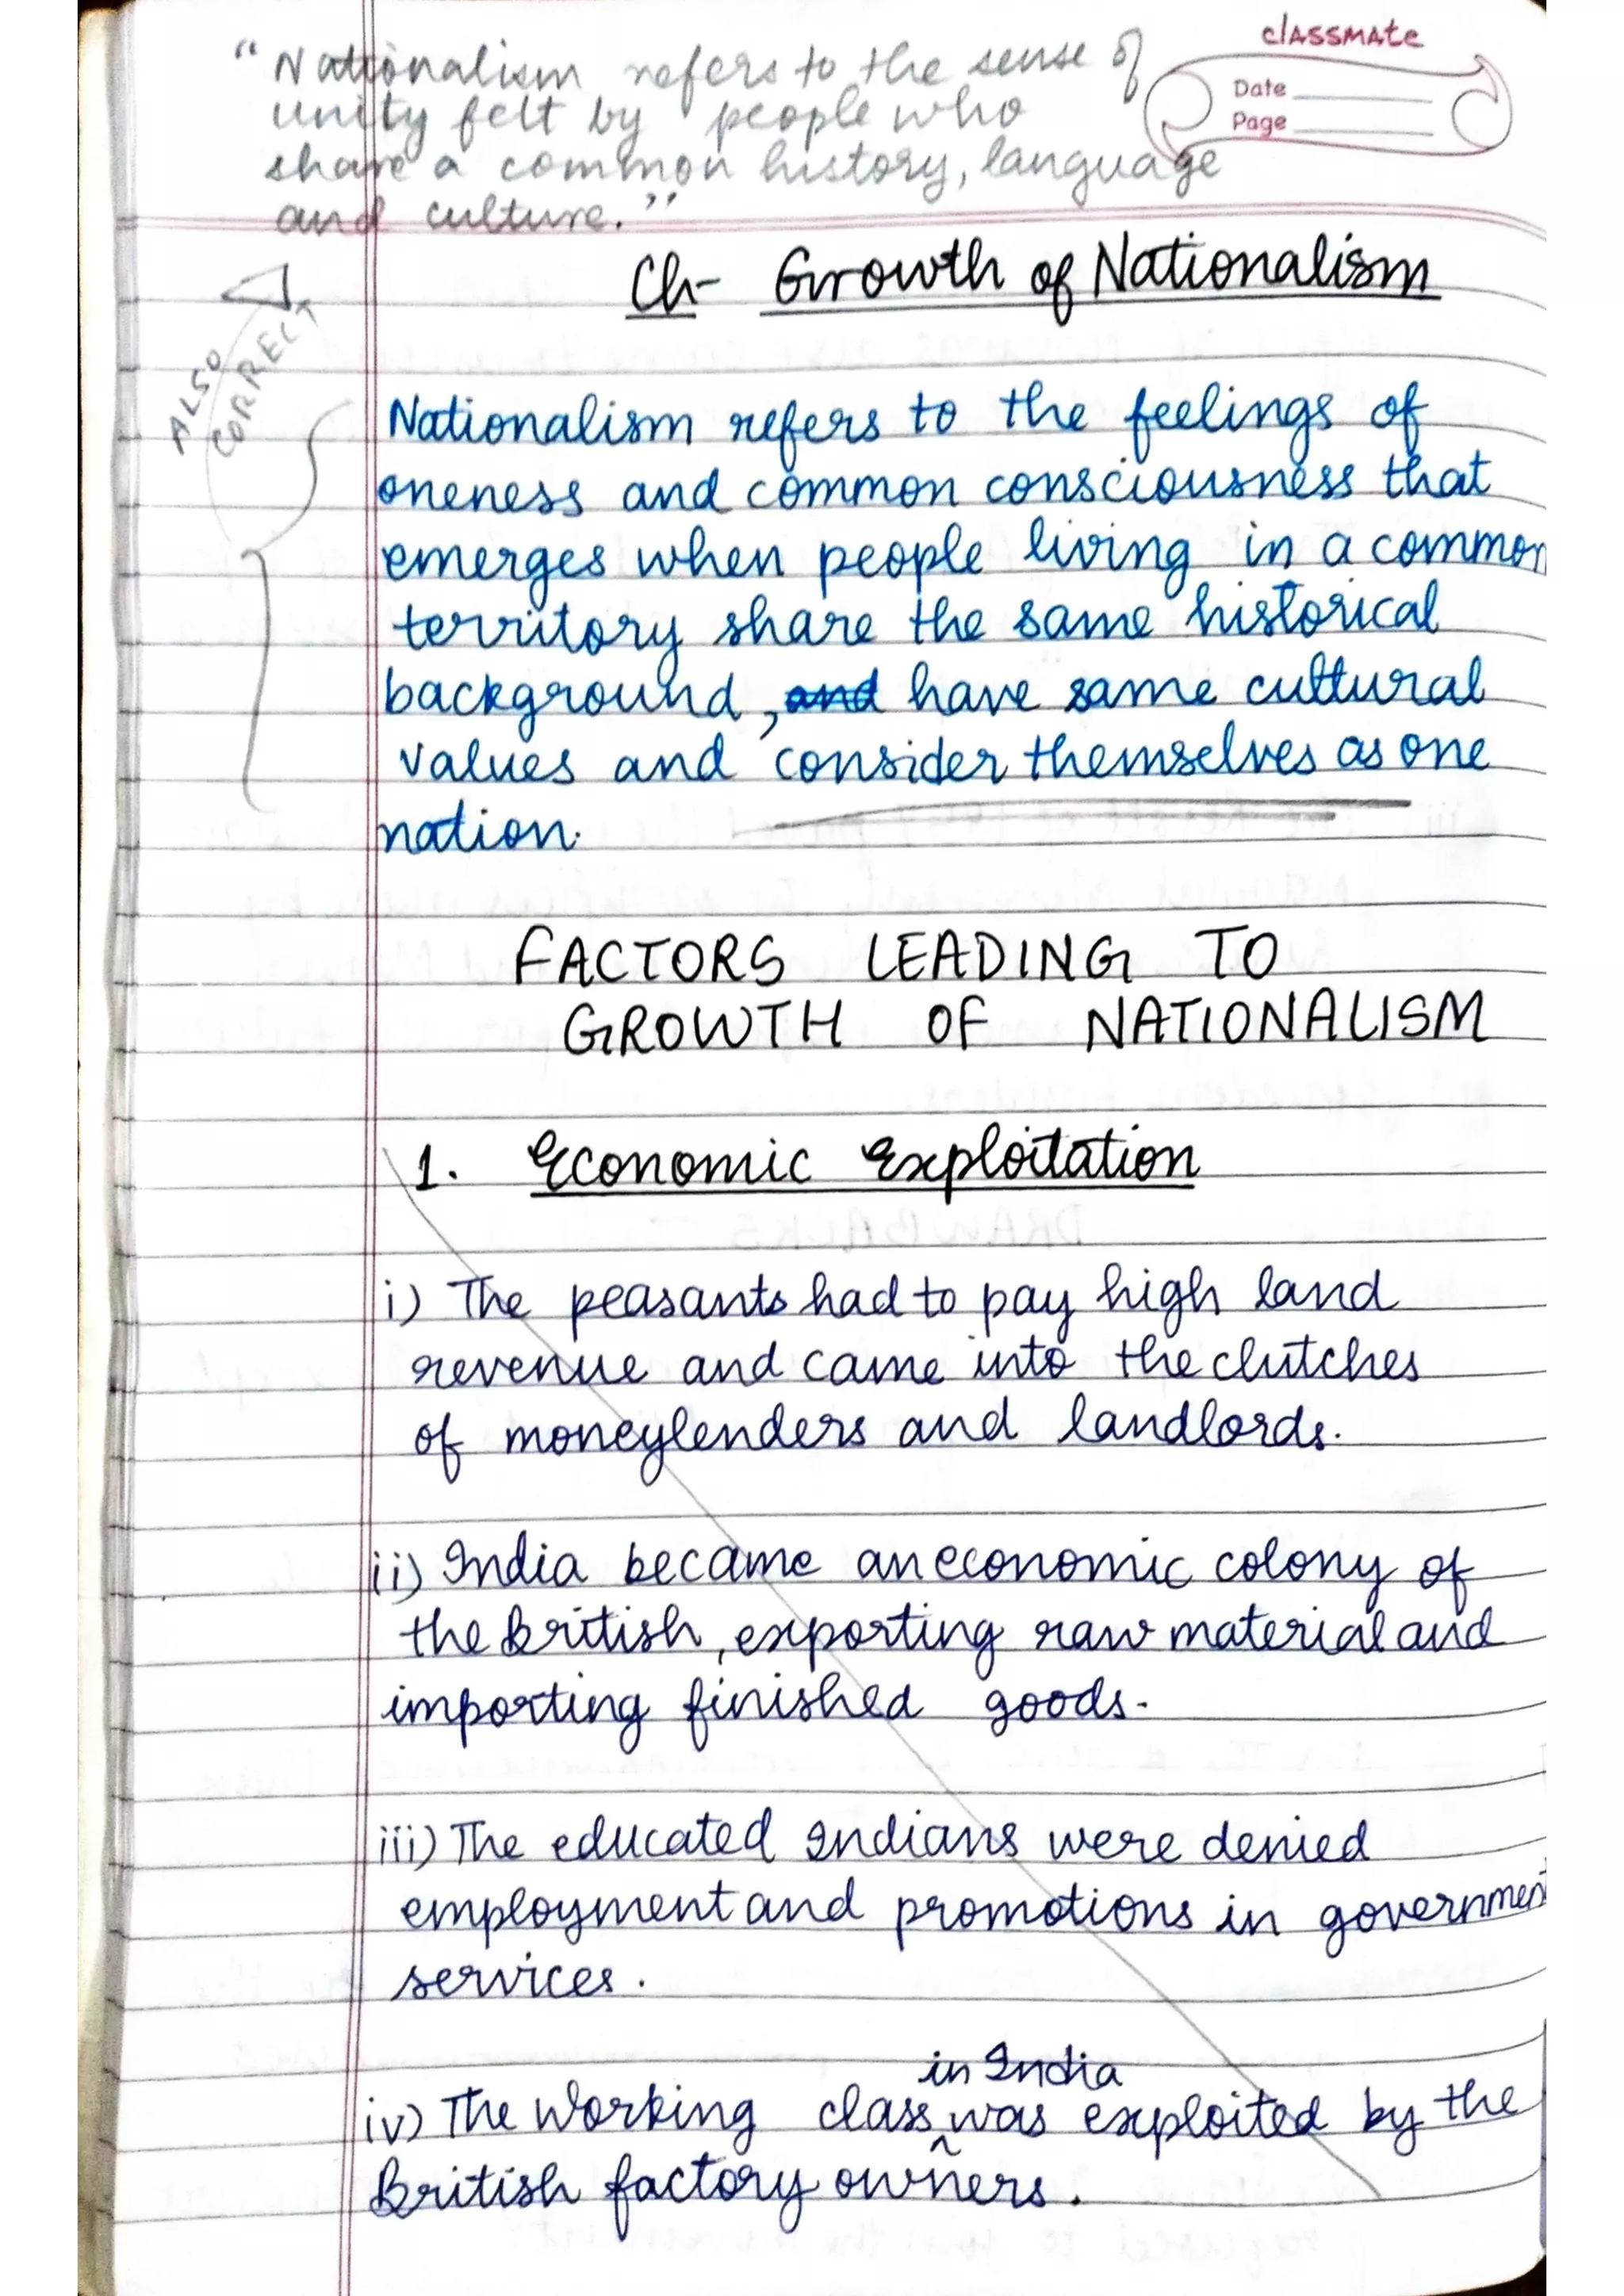 "Nationalism refers to the sense of
unity felt by people who
share a common history, language
and culture."
classmate
Date
Page
Ch- Growth of Nationalism
ALSO
CORRECT
Nationalism refers to the feelings of
oneness and common consciousness that
emerges when people living in a common
territory share the same historical
background, and have same cultural
values and consider themselves as one
nation.
FACTORS LEADING TO
GROWTH OF NATIONALISM
1. Economic Exploitation
i) The peasants had to pay high land
revenue and came into the clutches
of moneylenders and landlords.
ii) India became an economic colony of
the British, exporting raw material and
importing finished goods.
iii) The educated Indians were denied
employment and promotions in government
services.
in India
iv) The working class ^ was exploited by the
British factory owners.